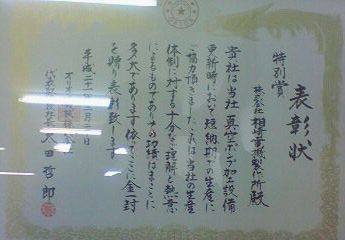 表彰状
特別賞
株式会社
相崎電機製作所殿
貴社は当社真空ポンプ加工設備
更新時において短納期での生産に
ご協力頂きましたこれは当社の生産
体制に対する十分なご理解と熱意
によるものでありその功績はまことに
多大であります依ってここに金一封
を贈り表彰致します
平成二十一年 月 日
代表取締役社長 久田哲郎